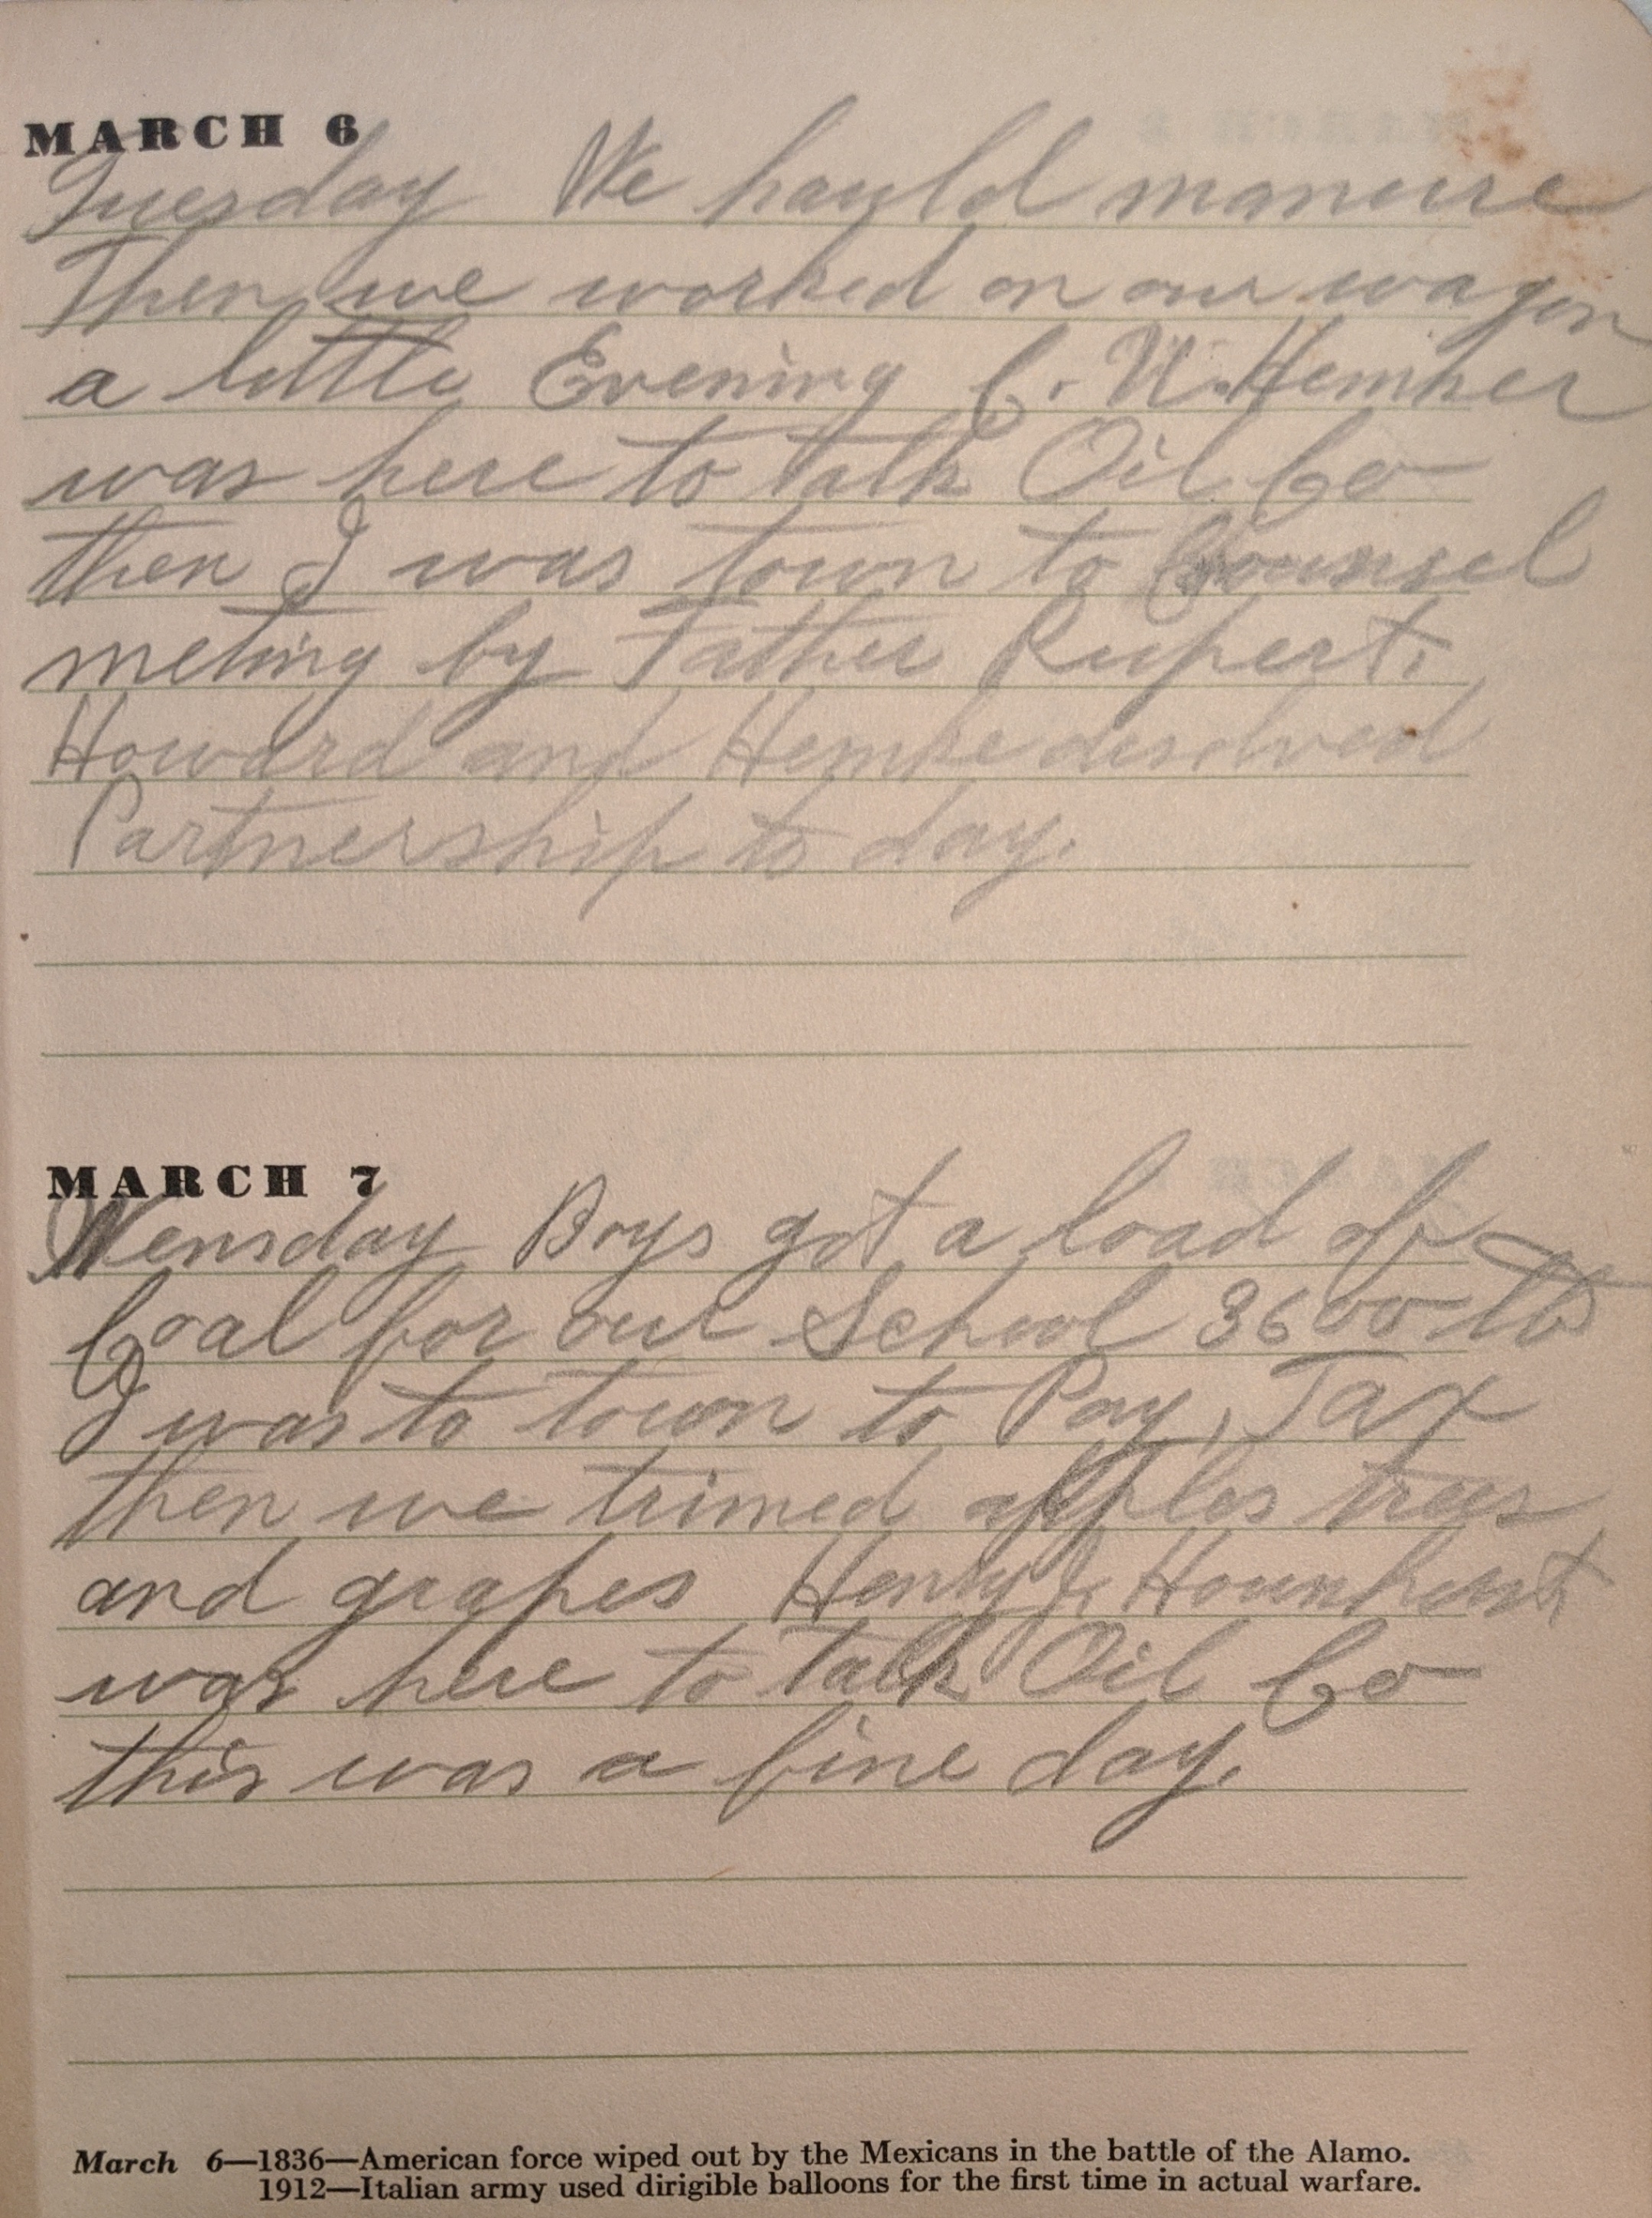 MARCH 6
Tuesday We hauld manure
Then we worked on our wagon
a little Evening C. W.
was here to talk Oil Co
then I was town to Counsel
meting by Father Rupert.
Howard and Hemke desolved
Partnership to day.
MARCH 7
Wensday Boys got a load of
Coal for our School 3600 lb
I was to town to Pay, Tax
then we trimed apples trees
and grapes Henry J.
was here to talk Oil Co
this was a fine day.
March 6—1836—American force wiped out by the Mexicans in the battle of the Alamo.
1912—Italian army used dirigible balloons for the first time in actual warfare.